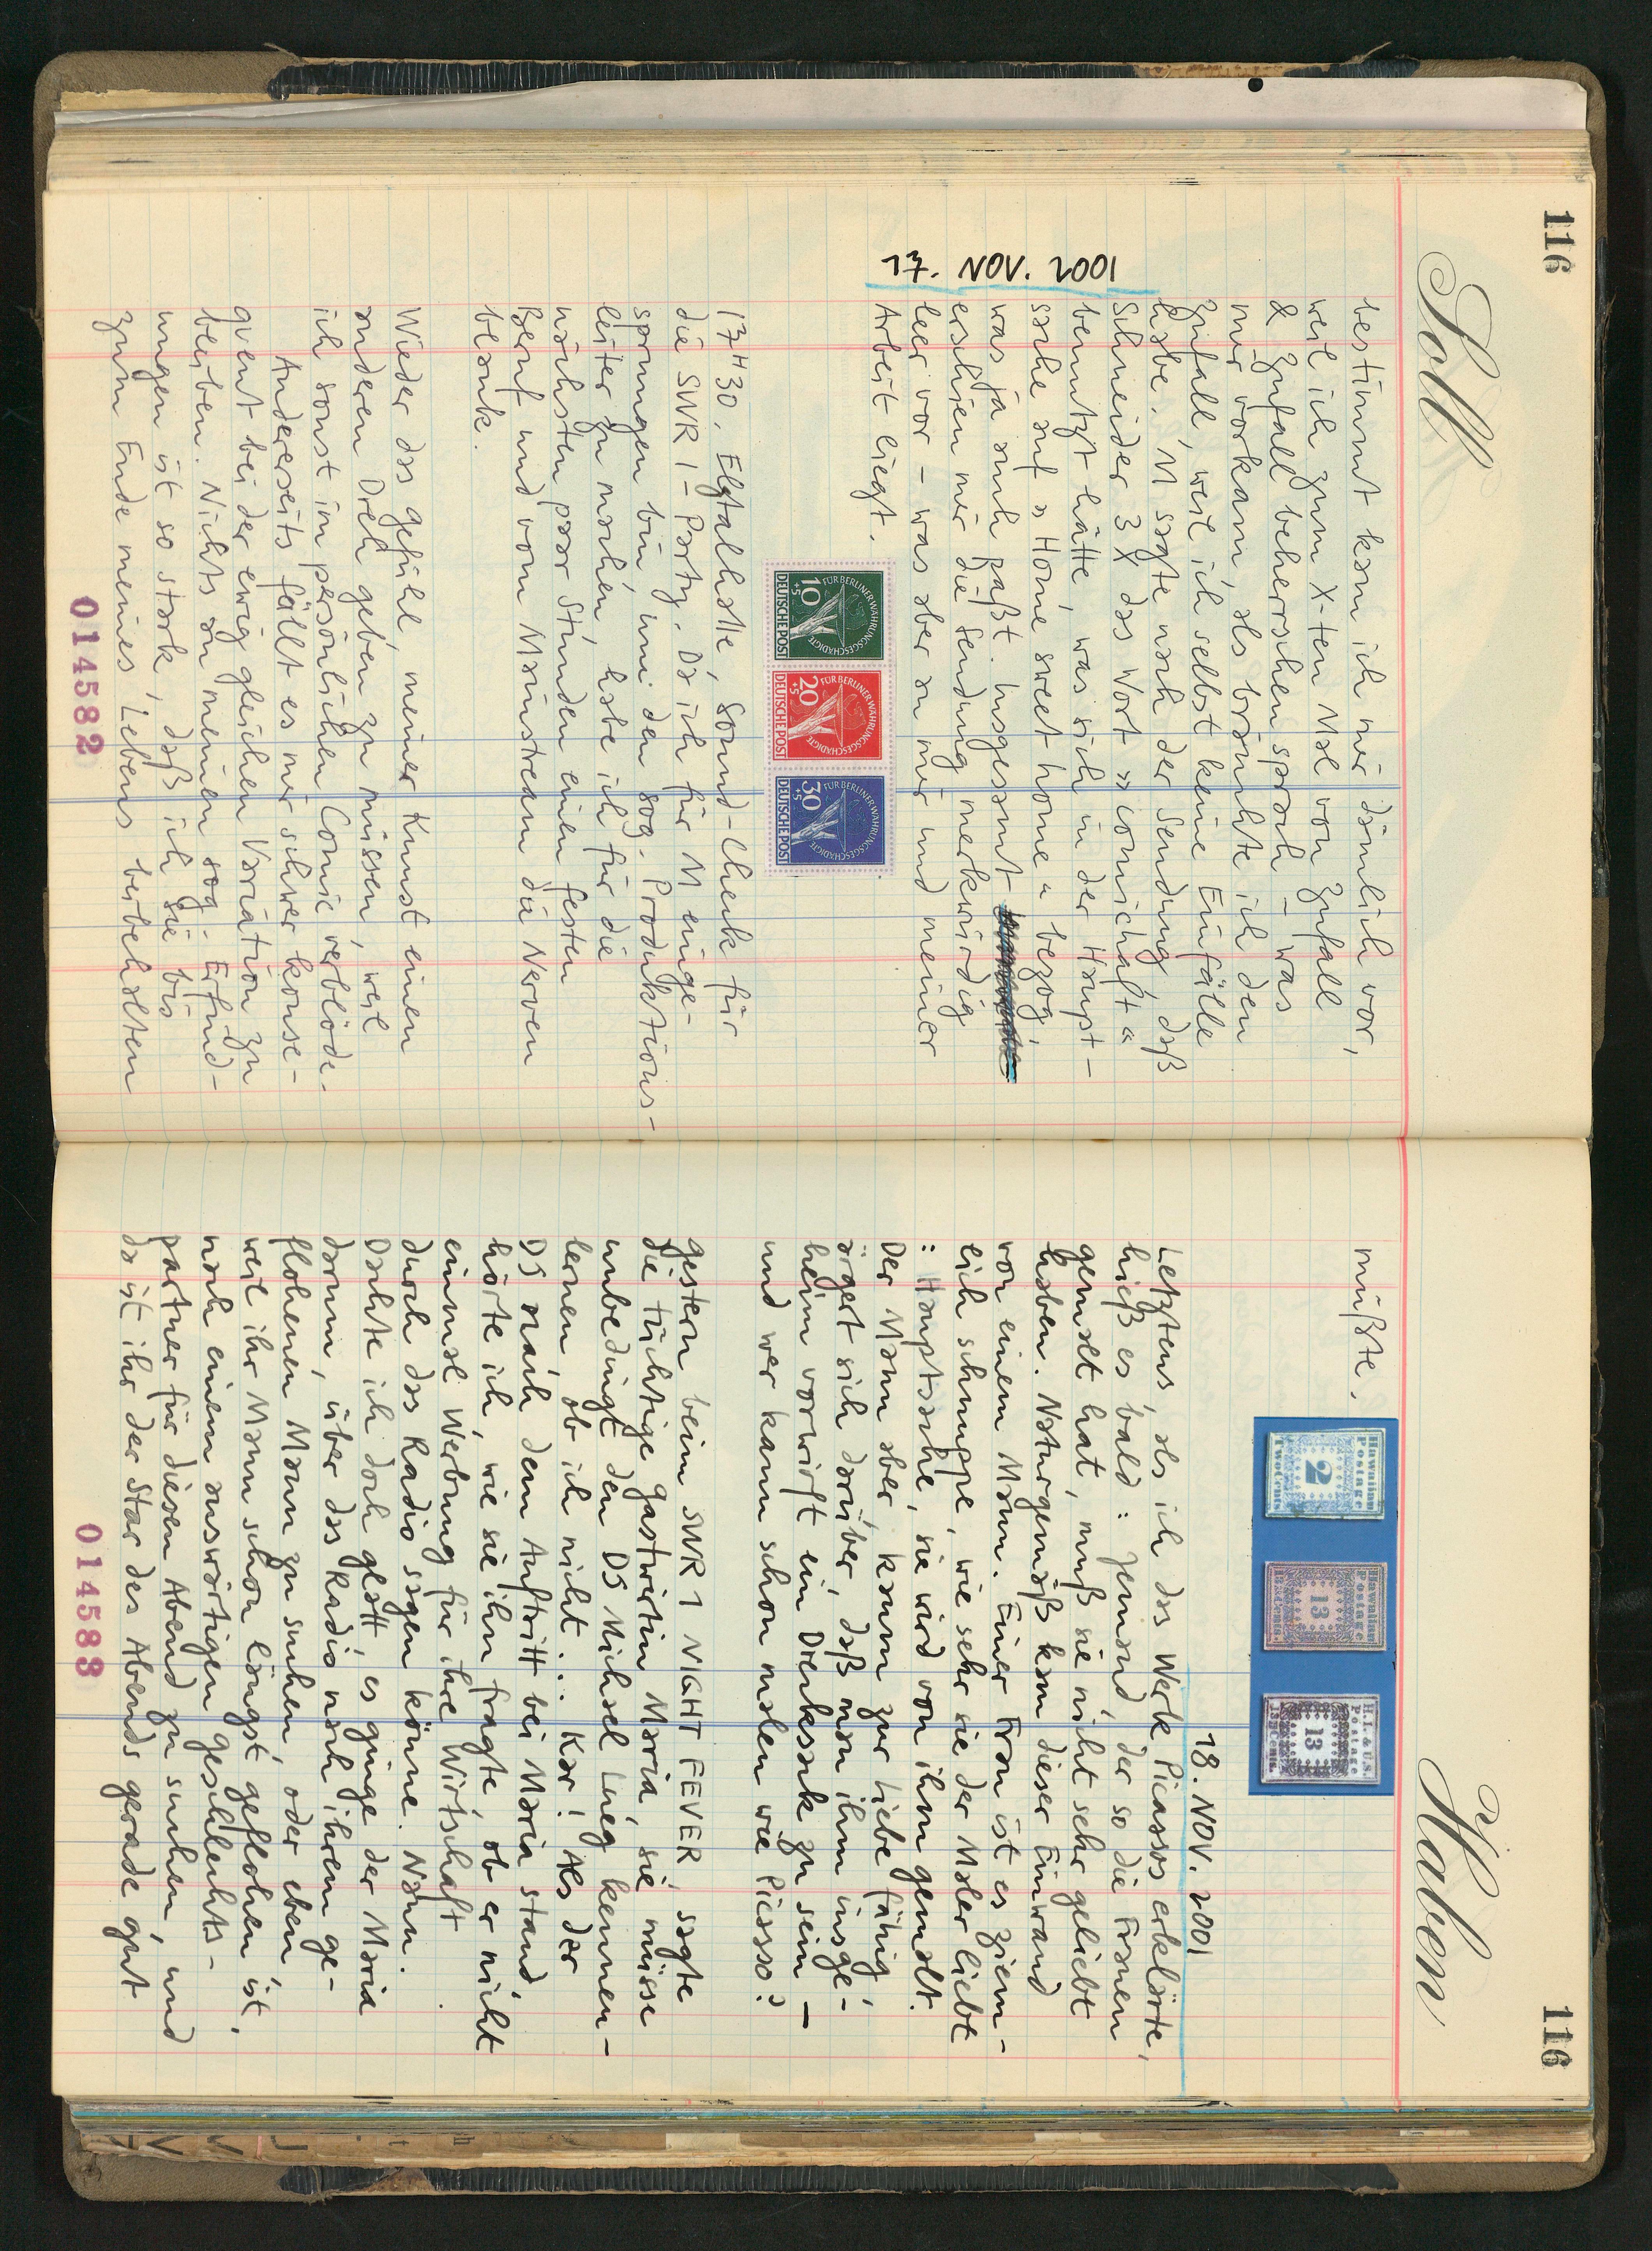 116
Soll
bestimmt kam ich mir dämlich vor,
weil ich zum X-ten Mal von Zufall
& Zufall beherrschen sprach – was
mir vorkam, als bräuchte ich den
Zufall, weil ich selbst keine Einfälle
habe. M sagte nach der Sendung, daß
Schneider 3X das Wort »comichaft«
benutzt hätte, was sich in der Haupt-
sache auf »Home sweet home« bezog,
was ja auch paßt. Insgesamt
17. NOV. 2001
erschien mir die Sendung merkwürdig
leer vor – was aber an mir und meiner
Arbeit liegt.
FÜR BERLINER WÄHRUNGSGESCHÄDIGTE
10
+5
DEUTSCHE POST
FÜR BERLINER WÄHRUNGSGESCHÄDIGTE
20
+5
DEUTSCHE POST
FÜR BERLINER WÄHRUNGSGESCHÄDIGTE
30
+5
DEUTSCHE POST
17H30. Elztalhalle, Sound-Check für
die SWR 1-Party. Da ich für M einge-
sprungen bin, um den sog. Produktions-
leiter zu machen, habe ich für die
nächsten paar Stunden einen festen
Beruf und vom Mainstream die Nerven
blank.
Wieder das Gefühl, meiner Kunst einen
anderen Dreh geben zu müssen, weil
ich sonst im persönlichen Comic verblöde.
Andererseits fällt es mir schwer konse-
quent bei der ewig gleichen Variation zu
bleiben. Nichts an meinen sog. Erfind-
ungen ist so stark, daß ich sie bis
zum Ende meines Lebens beibehalten
014582
Haben
116
müßte.
Hawaiian
Postage
2
Two Cents
Hawaiian
Postage
13
H.I. & U.S.
Postage
13
18. NOV. 2001
Letztens, als ich das Werk Picassos erklärte,
hieß es bald: Jemand, der so die Frauen
gemalt hat, muß sie nicht sehr geliebt
haben. Naturgemäß kam dieser Einwand
von einem Mann. Einer Frau ist es ziem-
lich schnuppe, wie sehr sie der Maler liebt
: Hauptsache, sie wird von ihm gemalt.
Der Mann aber, kaum zur Liebe fähig,
ärgert sich darüber, daß man ihm insge-
heim vorwirft ein Drecksack zu sein –
und wer kann schon malen wie Picasso?
Gestern beim SWR 1 NIGHT FEVER, sagte
die tüchtige Gastwirtin Maria, sie müsse
unbedingt den DJ Michael Lueg kennen-
lernen, ob ich nicht ... Klar! Als der
DJ nach dem Auftritt bei Maria stand,
hörte ich, wie sie ihn fragte, ob er nicht
einmal Werbung für ihre Wirtschaft
durch das Radio sagen könne. Nanu.
Dachte ich doch glatt, es ginge der Maria
darum, über das Radio nach ihrem ge-
flohenen Mann zu suchen, oder eben,
weil ihr Mann schon längst geflohen ist,
nach einem auswärtigen Geschlechts-
partner für diesen Abend zu suchen, und
da ist ihr der Star des Abends gerade gut
014583